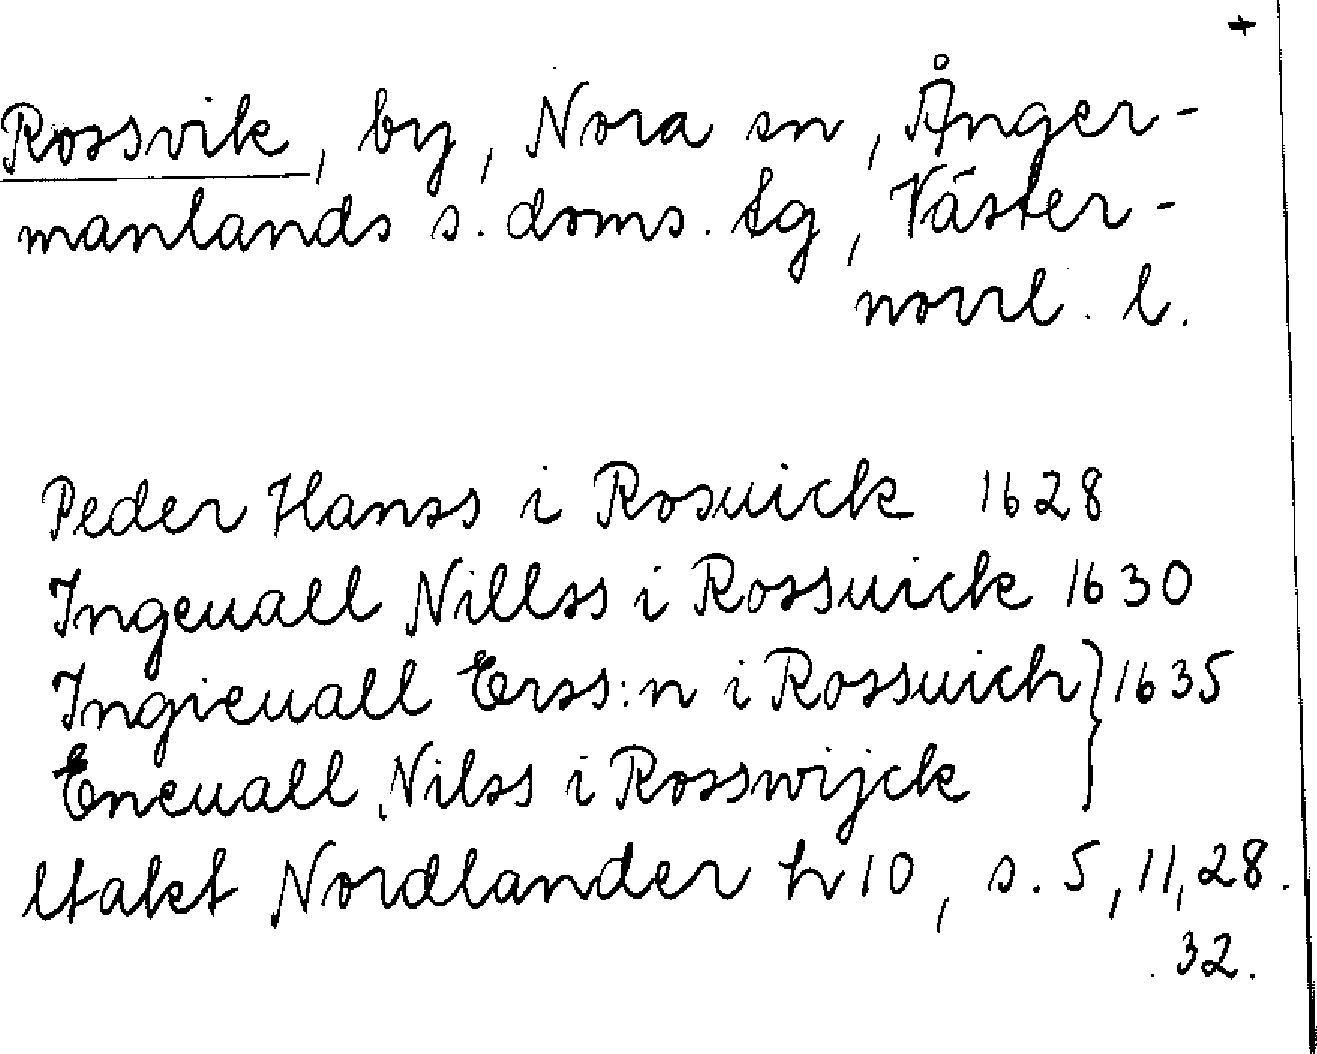 +
Rossvik, by, Nora sn, Ånger-
manlands s. doms. tg, Väster-
norrl. l.
Peder Hanss i Rosuick 1628
Ingeuall Nillss i Rossuick 1630
Ingieuall Erss:n i Rossuich } 1635
Eneuall Nilss i Rosswijck
Utakt Nordlander h 10, s. 5, 11, 28.
32.